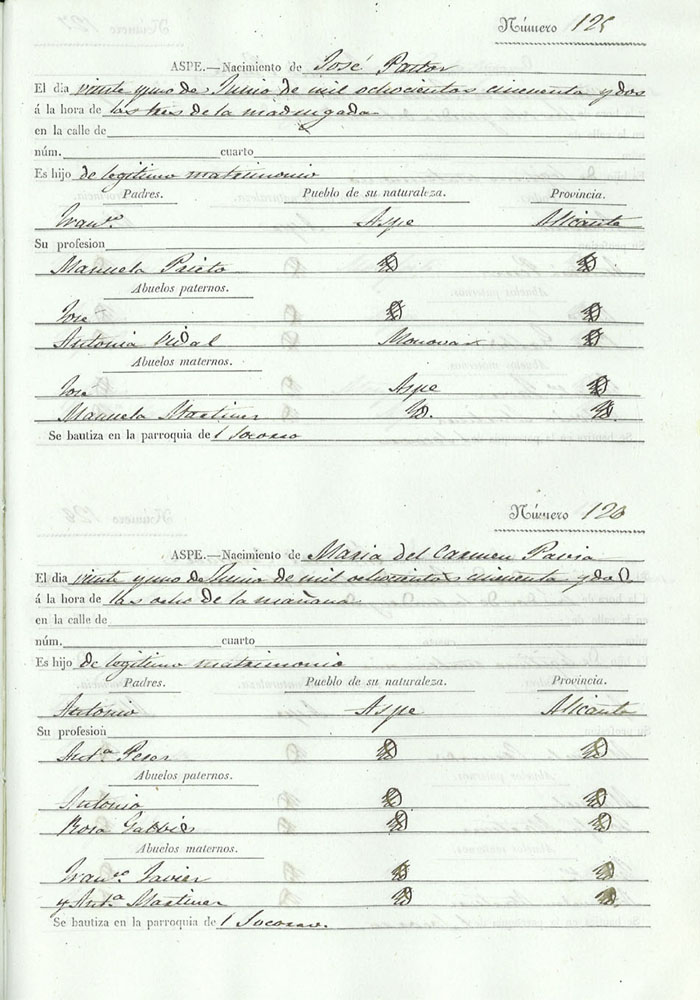 Número 125
ASPE.—Nacimiento de José Pastor
El dia veinte y uno de Junio de mil ochocientos cincuenta y dos
á la hora de las tres de la madrugada
en la calle de
núm. cuarto
Es hijo de legitimo matrimonio
Padres. Pueblo de su naturaleza. Provincia.
Franco. Aspe Alicante
Su profesion
Manuela Prieto
Abuelos paternos.
Jose
Antonia Vidal Monovar
Abuelos maternos.
Jose Aspe
Manuela Martinez
Se bautiza en la parroquia del Socorro
Número 126
ASPE.—Nacimiento de Maria del Carmen Pavia
El dia veinte y uno de Junio de mil ochocientos cincuenta y dos
á la hora de las ocho de la mañana
en la calle de
núm. cuarto
Es hijo de legitimo matrimonio
Padres. Pueblo de su naturaleza. Provincia.
Antonio Aspe Alicante
Su profesion
Anta
Abuelos paternos.
Antonio
Rosa
Abuelos maternos.
Franco. Javier
y Anta. Martinez
Se bautiza en la parroquia del Socorro.